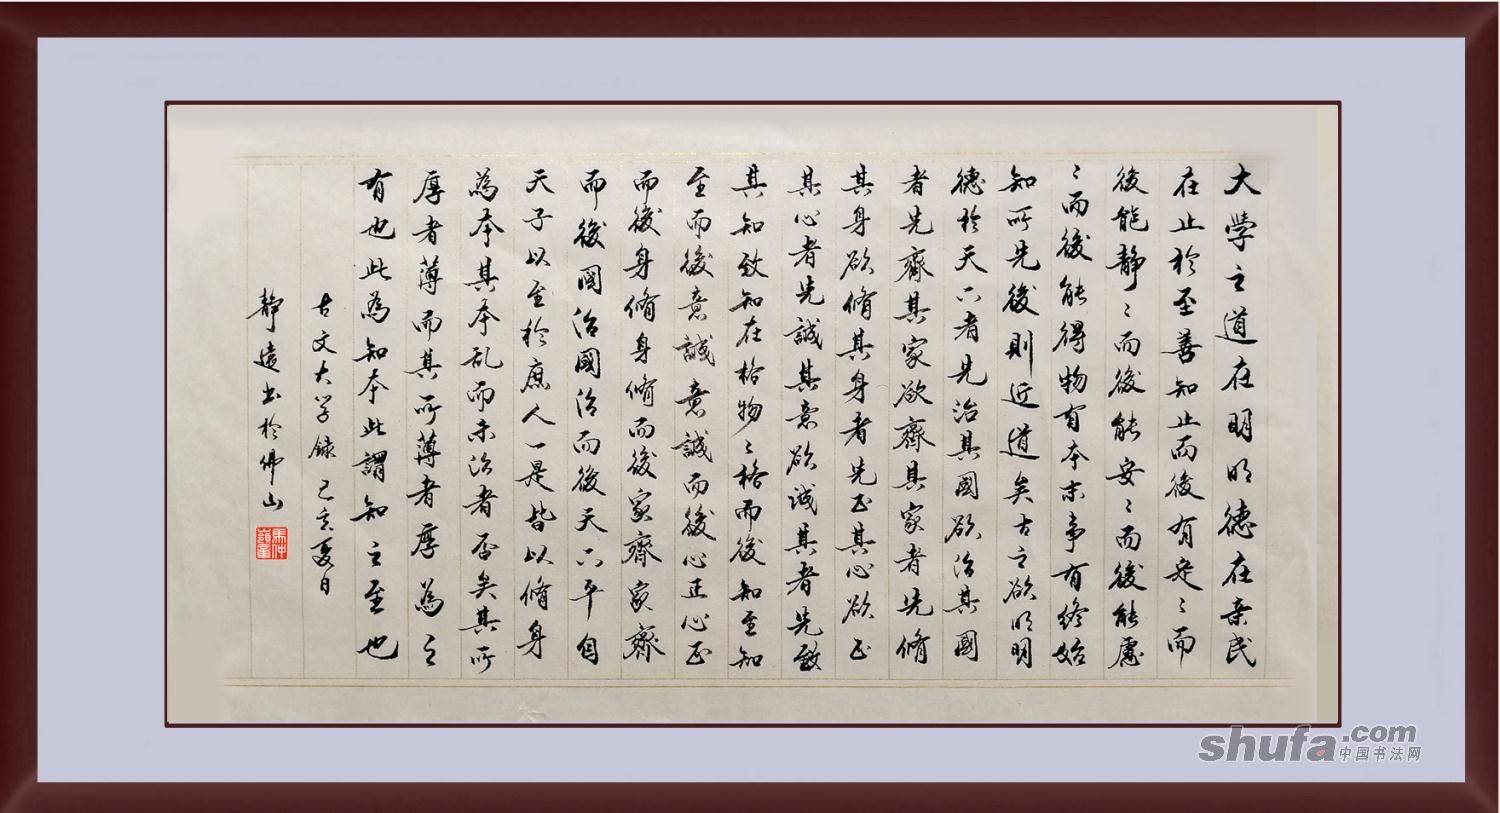 大學之道在明明德在亲民
在止於至善知止而後有定〻而
後能静〻而後能安〻而後能慮
〻而後能得物有本末事有终始
知所先後則近道矣古之欲明明
德於天下者先治其國欲治其國
者先齊其家欲齊其家者先脩
其身欲脩其身者先正其心欲正
其心者先誠其意欲誠其者先致
其知致知在格物〻格而後知至知
至而後意誠意誠而後心正心正
而後身脩身脩而後家齊家齊
而後國治國治而後天下平自
天子以至於庶人一是皆以脩身
為本其本乱而末治者否矣其所
厚者薄而其所薄者厚為之
有也此為知本此謂知之至也
古文大学録 己亥夏日
静遠书於佛山
馬仲嶺
shufa.com
中国书法网